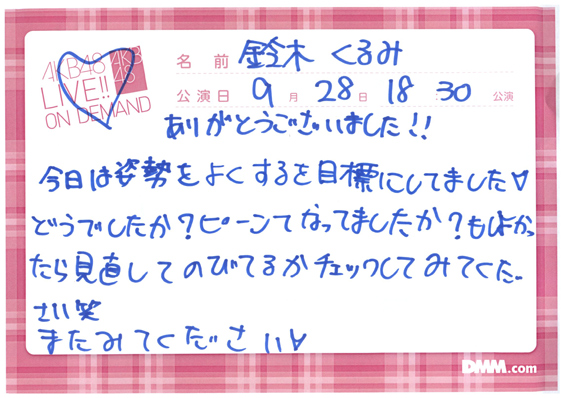 AKB48
AKB
48
LIVE!!
ON DEMAND
名前 鈴木 くるみ
公演日 9月 28日 18 30 公演
ありがとうございました!!
今日は姿勢をよくするを目標にしてました♡
どうでしたか?ピーンてなってましたか?もしよかっ
たら見直してのびてるかチェックしてみてくだ
さい笑
またみてください♡
DMM.com